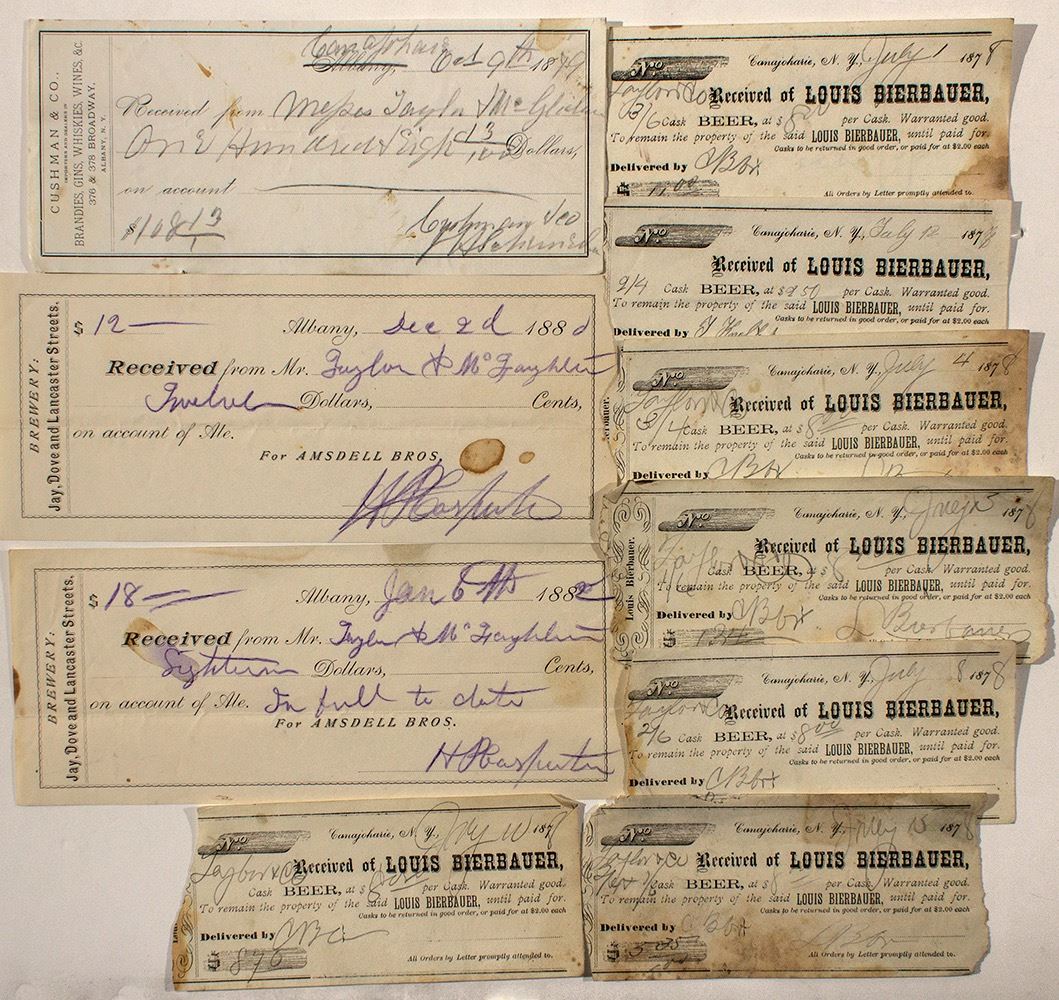 CUSHMAN & CO.,
IMPORTERS AND DEALERS IN
BRANDIES, GINS, WHISKIES, WINES, &c.
376 & 378 BROADWAY,
ALBANY, N. Y.
Canajoharie
Albany, Oct 9th 1879
Received from Messrs Taylor & McGlaughlin
One Hundred & Eigh 13/100 Dollars,
on account
$108 13
Cushman & Co
BREWERY:
Jay, Dove and Lancaster Streets.
$ 12 —
Albany, Dec 2d 1880
Received from Mr. Taylor & McLaughlin
Twelve Dollars, Cents,
on account of Ale.
For AMSDELL BROS.
H P Carpenter
BREWERY:
Jay, Dove and Lancaster Streets.
$ 18 —
Albany, Jan 6th 1882
Received from Mr. Taylor & McLaughlin
Eighteen Dollars, Cents,
on account of Ale. In full to date
For AMSDELL BROS.
H P Carpenter
No
Canajoharie, N. Y., July 1 1878
Taylor & Co Received of LOUIS BIERBAUER,
3/6 Cask BEER, at $ 8 00 per Cask. Warranted good.
To remain the property of the said LOUIS BIERBAUER, until paid for.
Casks to be returned in good order, or paid for at $2.00 each
Delivered by
$
All Orders by Letter promptly attended to.
No
Canajoharie, N. Y., July 12 1878
Received of LOUIS BIERBAUER,
2/4 Cask BEER, at $ 50 per Cask. Warranted good.
To remain the property of the said LOUIS BIERBAUER, until paid for.
Casks to be returned in good order, or paid for at $2.00 each
Delivered by
No
Canajoharie, N. Y., July 4 1878
Taylor & Co Received of LOUIS BIERBAUER,
3/4 Cask BEER, at $ 8 00 per Cask. Warranted good.
To remain the property of the said LOUIS BIERBAUER, until paid for.
Casks to be returned in good order, or paid for at $2.00 each
Delivered by
Louis Bierbauer.
No
Canajoharie, N. Y., July 3 1878
Received of LOUIS BIERBAUER,
Cask BEER, at $ 8 per Cask. Warranted good.
To remain the property of the said LOUIS BIERBAUER, until paid for.
Casks to be returned in good order, or paid for at $2.00 each
Delivered by
L Bierbauer
$
No
Canajoharie, N. Y., July 8 1878
Taylor & Co Received of LOUIS BIERBAUER,
2/6 Cask BEER, at $ 8 00 per Cask. Warranted good.
To remain the property of the said LOUIS BIERBAUER, until paid for.
Casks to be returned in good order, or paid for at $2.00 each
Delivered by
No
Canajoharie, N. Y., July 10 1878
Taylor & Co Received of LOUIS BIERBAUER,
Cask BEER, at $ 8 per Cask. Warranted good.
To remain the property of the said LOUIS BIERBAUER, until paid for.
Casks to be returned in good order, or paid for at $2.00 each
Delivered by
$
All Orders by Letter promptly attended to.
No
Canajoharie, N. Y., July 15 1878
Taylor & Co Received of LOUIS BIERBAUER,
Cask BEER, at $ 8 per Cask. Warranted good.
To remain the property of the said LOUIS BIERBAUER, until paid for.
Casks to be returned in good order, or paid for at $2.00 each
Delivered by
$
All Orders by Letter promptly attended to.